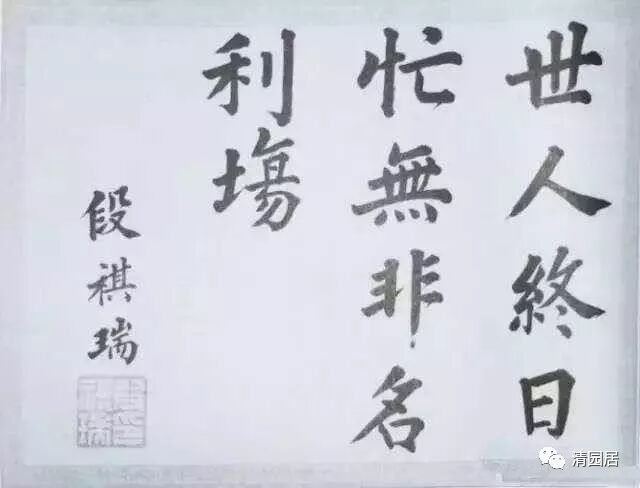 世人終日
忙無非名
利塲
段祺瑞
清园居